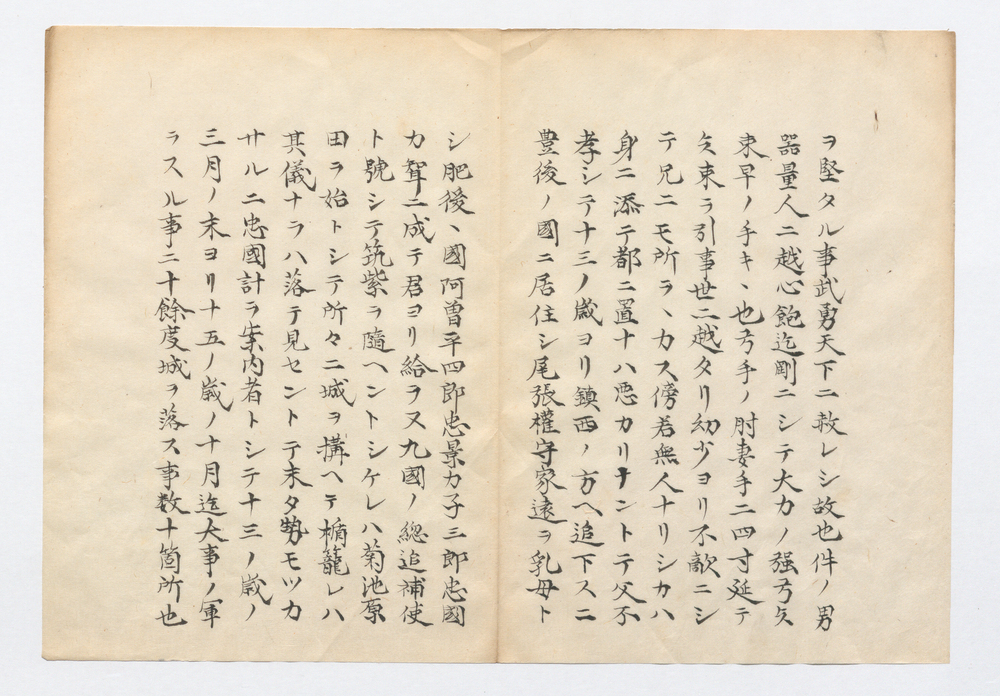 ヲ堅タル事武勇天下ニ赦レシ故也件ノ男
器量人ニ越心飽迄剛ニシテ大力ノ强弓矢
束早ノ手キヽ也弓手ノ肘妻手ニ四寸延テ
矢束ヲ引事世ニ越タリ幼少ヨリ不敵ニシ
テ兄ニモ所ヲヽカス傍若無人ナリシカハ
身ニ添テ都ニ置ナハ悪カリナントテ父不
孝シテ十三ノ歳ヨリ鎮西ノ方ヘ追下スニ
豊後ノ國ニ居住シ尾張權守家遠ヲ乳母ト
シ肥後ヽ國阿曽平四郎忠景カ子三郎忠國
カ聟ニ成テ君ヨリ給ヲヌ九國ノ總追補使
ト號シテ筑紫ヲ隨ヘントシケレハ菊池原
田ヲ始トシテ所々ニ城ヲ搆ヘテ楯籠レハ
其儀ナラハ落テ見セントテ未タ勢モツカ
サルニ忠國計ヲ案内者トシテ十三ノ歳ノ
三月ノ末ヨリ十五ノ歳ノ十月迄大事ノ軍
ヲスル事二十餘度城ヲ落ス事数十箇所也